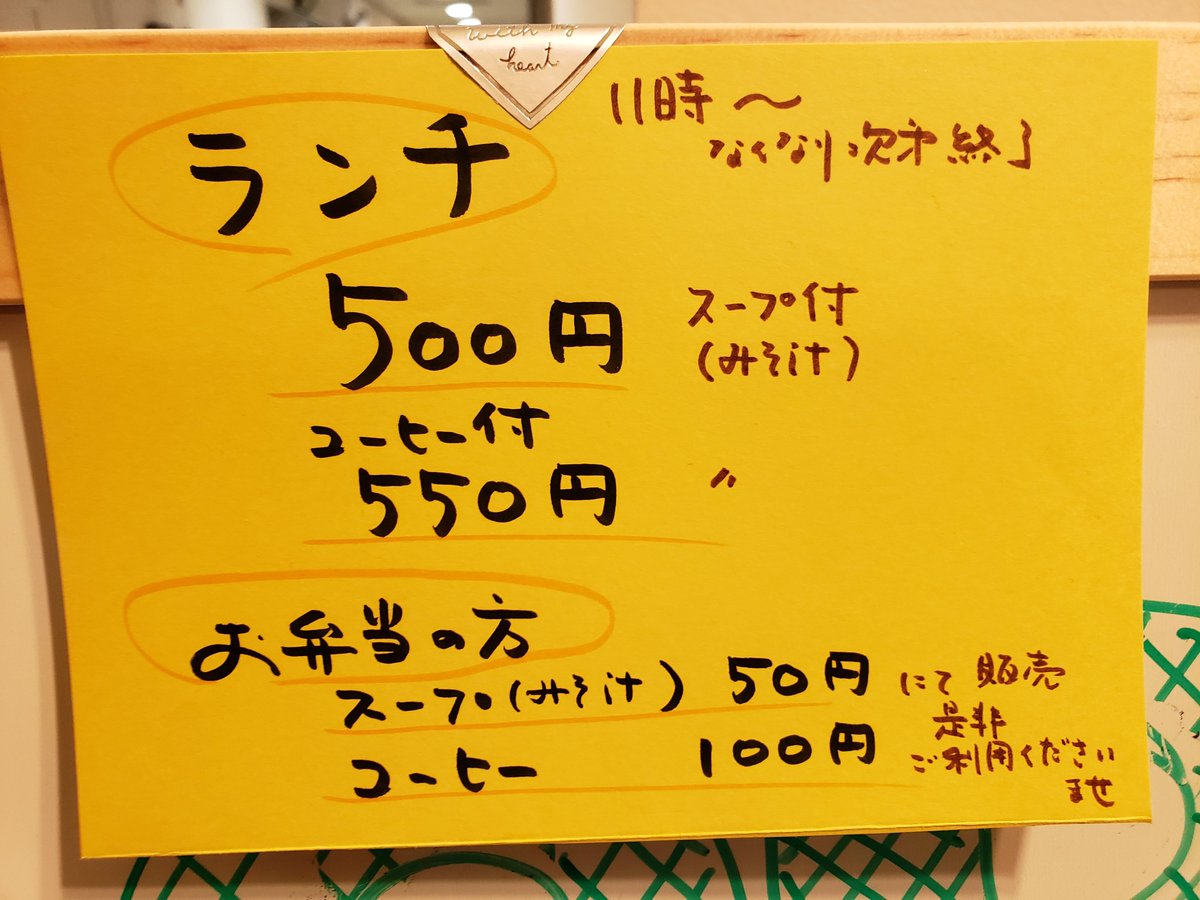 with my
heart
ランチ
11時〜
なくなり次第終了
500円
スープ付
(みそ汁)
コーヒー付
550円 〃
お弁当の方
スープ(みそ汁) 50円
コーヒー 100円
にて販売
是非
ご利用ください
ませ